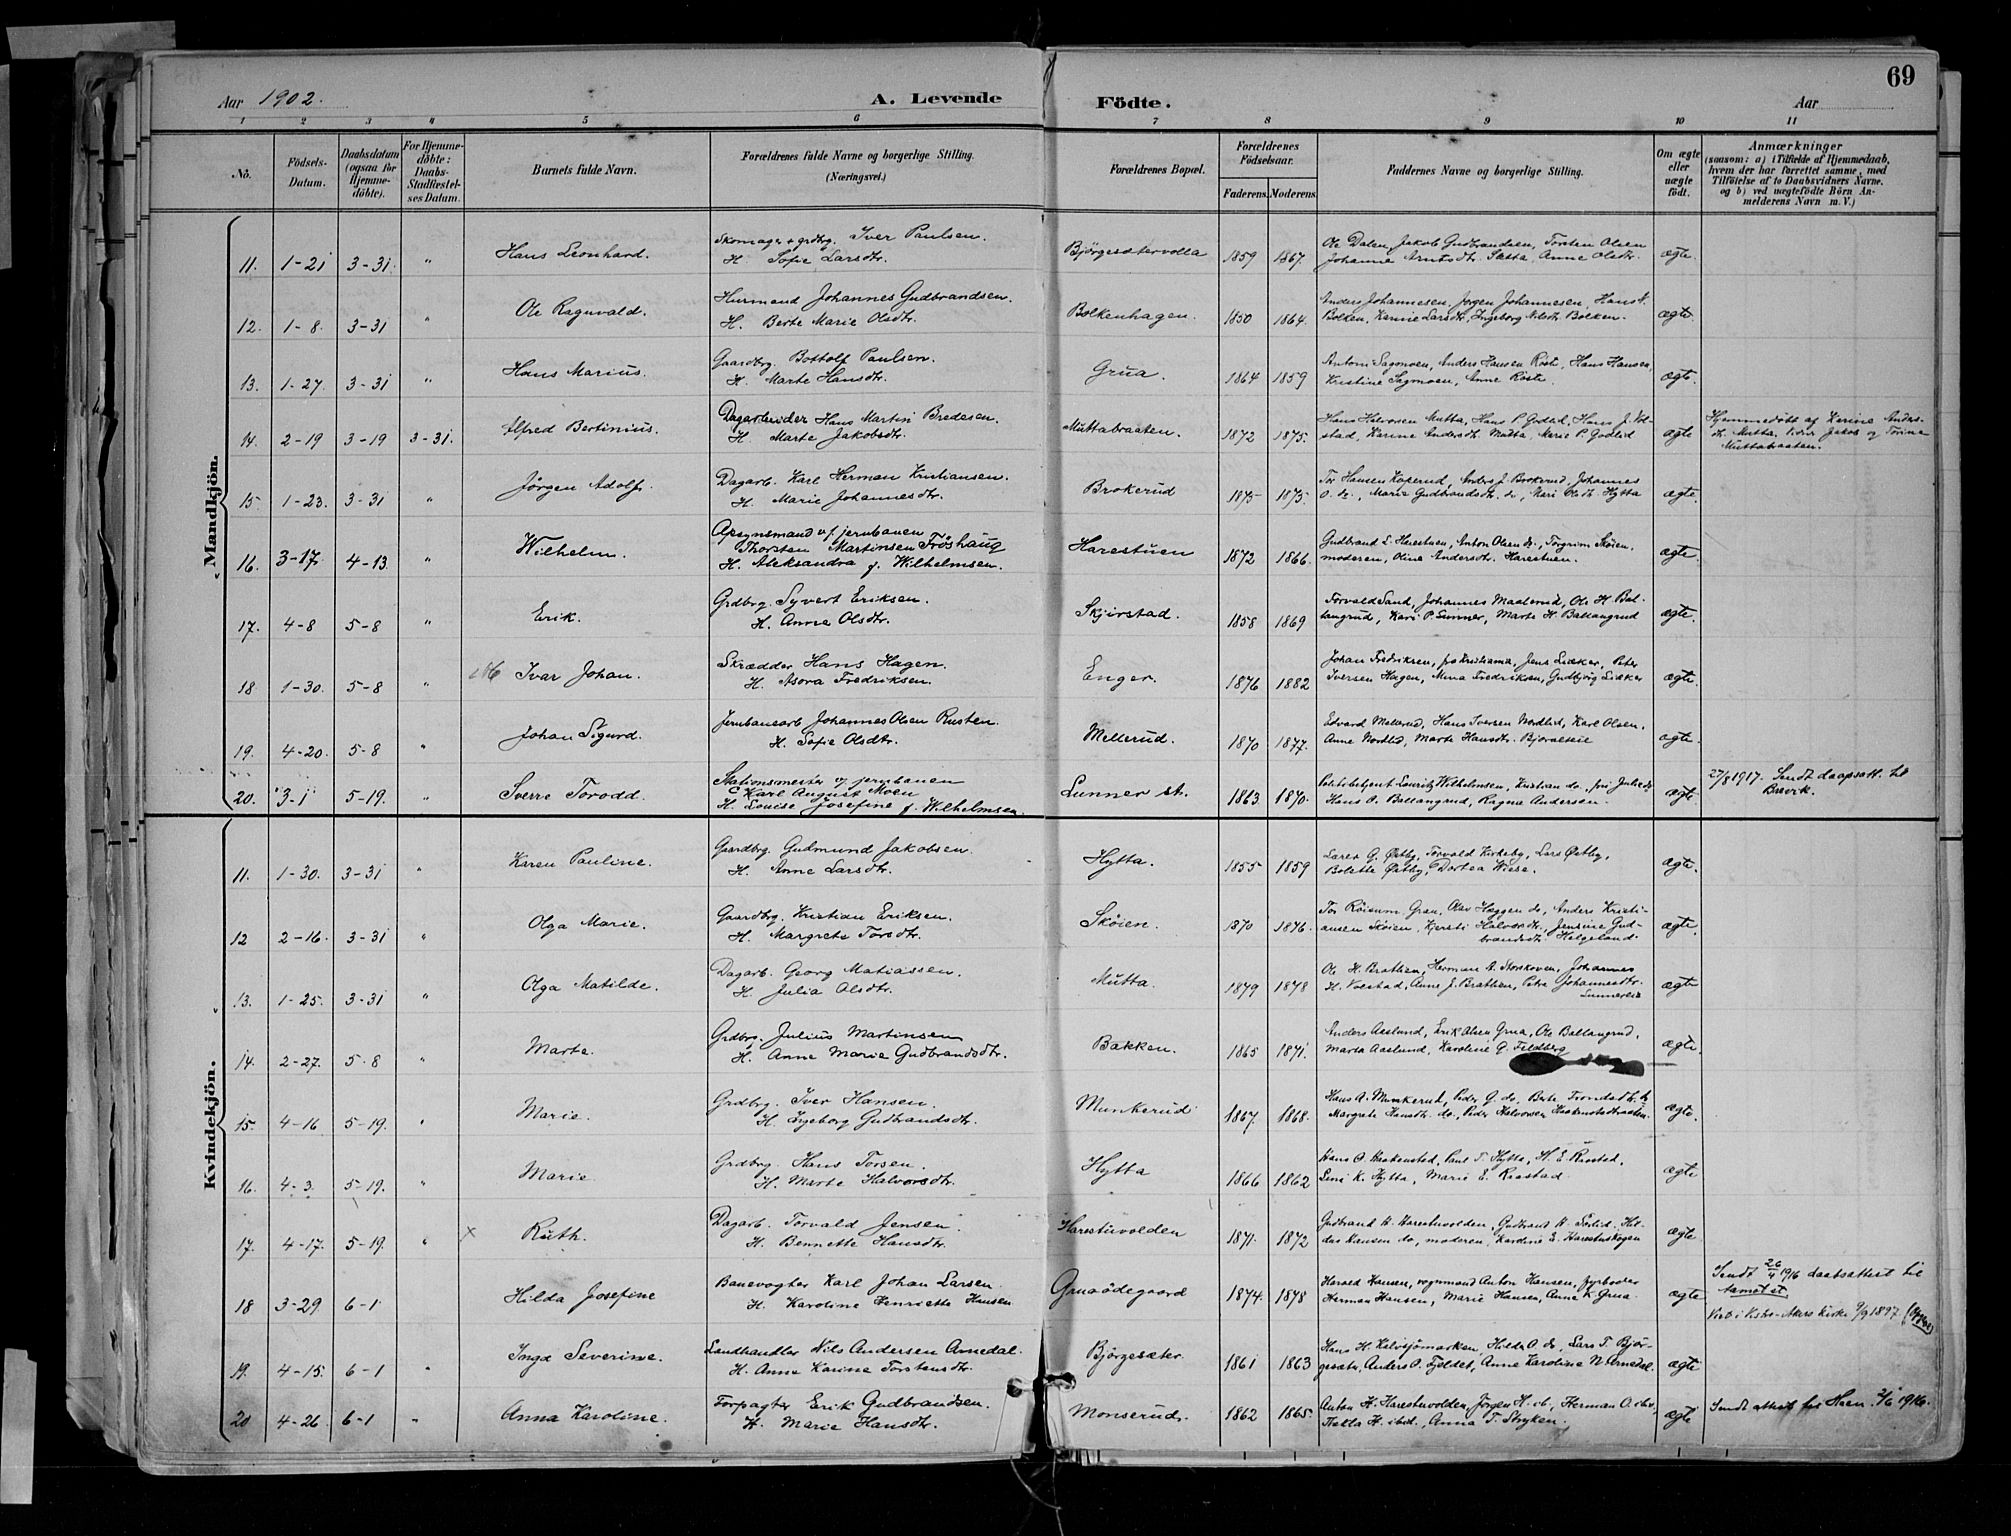 69
Aar 1902. A. Levende Födte. Aar
1 2 3 4 5 6 7 8 9 10 11
No. Födsels-Datum. Daabsdatum (ogsaa for Hjemmedöbte). For Hjemmedöbte: Daabs-Stadfæstelses Datum. Barnets fulde Navn. Forældrenes fulde Navne og borgerlige Stilling. (Næringsvei.) Forældrenes Bopæl. Forældrenes Födselsaar. Faderens. Moderens. Faddernes Navne og borgerlige Stilling. Om ægte eller uægte födt. Anmærkninger (saasom: a) i Tilfælde af Hjemmedaab, hvem der har forrettet samme, med Tilföielse af to Daabsvidners Navne, og b) ved uægtefödte Börn Anmelderens Navn m. V.)
Mandkjön.
11. 1-21 3-31. " Hans Leonhard. Skomager + grdbrg. Iver Paulsen. Bjørgesætervolla 1859 1867. Ole Dalen, Jakob Gudbrandsen, Torsten Olsen ægte
H. Sofie Larsdtr. Johanne Arntsdtr. Sætta, Anne Olsdtr.
12. 1-8. 3-31 " Ole Ragnvald. Husmand Johannes Gudbrandsen. Bolkenhagen. 1850 1864. Anders Johannesen, Jørgen Johannesen, Hans ægte
H. Berte Marie Olsdtr. Bolken, Karine Larsdtr, Ingeborg Nilsdtr Bolken.
13. 1-27. 3-31 " Hans Marius. Gaardbrg Bottolf Paulsen. Grua. 1864 1859 Anton Sagmoen, Anders Hansen Røste, Hans Hansen, ægte.
H. Marte Hansdtr. Kristine Sagmoen, Anne Røste.
14. 2-19 3-19 3-31. Alfred Bertinius. Dagarbeider Hans Martin Bredesen. Muttabraaten. 1872 1875. Hans Halvorsen Mutta, Hans P. Godlid, Hans J. Vol- ægte Hjemmedøbt af Karine Anders-
H. Marte Jakobsdtr. stad, Karine Andersdtr Mutta, Marie P. Godlid dtr. Mutta. Vidner Jakob og Torine
Muttabraaten.
15. 1-23. 3-31 " Jørgen Adolf. Dagarb. Karl Herman Kristiansen. Brokerud 1875 1875. Tor Hansen Kaperud, Anders J. Brokerud, Johannes ægte.
H. Marie Johannesdtr. O. do., Marie Gudbrandsdtr. do, Mari Olsdtr Hytta
16. 3-17. 4-13. " Wilhelm. Opsynsmand v. jernbanen Harestuen 1872 1866. Gudbrand L. Harestuen, Anton Olsen do., Torgrim Skøien, ægte.
Thorsten Martinsen Frøshaug moderen, Oline Andersdtr. Harestuen.
H. Aleksandra f. Wilhelmsen.
17. 4-8 5-8 " Erik. Grdbrg. Syvert Eriksen. Skjerstad. 1858 1869 Torvald Sand, Johannes Maalerud, Ole H. Bal- ægte.
H. Anne Olsdtr. langrud, Kari P. Sunner, Marte H. Ballangrud
18 1-30. 5-8 " Ivar Johan. Skrædder Hans Hagen. Enger. 1876 1882 Johan Fredriksen, fra Kristiania, Jens Liaker, Peter ægte.
H. Asora Fredriksen. Iversen Hagen, Mina Fredriksen, Gudbjørg Liaker
19. 4-20. 5-8 " Johan Sigurd. Jernbanearb Johannes Olsen Rusten. Mellerud. 1870 1877. Edvard Mellerud, Hans Iversen Nordlid, Karl Olsen, ægte.
H. Sofie Olsdtr. Anne Nordlid, Marte Hansdtr. Bjøralseie
20. 3-1 5-19. " Sverre Torodd. Stationsmester v. jernbanen Lunner st. 1863 1870. Politibetjent Louritz Wilhelmsen, Kristian do., frøi Julie do ægte 27/8 1917. Sendt daapsatt. til
Karl August Moen Hans O. Ballangrud, Ragna Andersen. Brevik.
H. Louise Josefine f. Wilhelmsen.
Kvindekjön.
11. 1-30. 3-31 " Karen Pauline. Gaardbrg. Gudmund Jakobsen. Hytta. 1855 1859 Lærer G. Østby, Torvald Kirkeby, Lars Østby, ægte.
H. Anne Larsdtr. Bolette Østby, Dortea Wiese.
12 2-16. 3-31 " Olga Marie. Gaardbrg. Kristian Eriksen. Skøien. 1870 1876. Tor Røisum Gran, Olav Haggen do, Anders Kristi- ægte.
H. Margrete Torsdtr. ansen Skøien, Kjersti Halvorsdtr., Jensine Gud-
brandsdtr. Helgeland.
13. 1-25. 3-31 " Olga Matilde. Dagarb. Georg Matiassen. Mutta. 1879 1878 Ole H. Brathen, Herman A. Storskoven, Johannes ægte
H. Julia Olsdtr. H. Volstad, Anne J. Brathen, Petra Johannesdtr.
Sunnereie
14. 2-27. 5-8 " Marte. Grdbrg. Julius Martinsen Bakken. 1865 1871. Anders Aaslund, Erik Olsen Grua, Ole Ballangrud, ægte.
H. Anne Marie Gudbrandsdtr. Marta Aaslund, Karoline G. Feldberg
15. 4-16 5-19. " Marie. Grdbrg. Iver Hansen. Munkerud 1867. 1868. Hans A. Munkerud, Peder G. do, Berte Trondsdtr. ægte.
H. Ingeborg Gudbrandsdtr. Margrete Hansdtr. do, Peder Halvorsen Haakenstadbraaten.
16. 4-3. 5-19. " Marie. Grdbrg. Hans Torsen. Hytta 1866 1862 Hans O. Haakenstad, Paul T. Hytta, H. E. Rustad, ægte
H. Marte Halvorsdtr. Lini K. Hytta, Marie E. Raastad.
17. 4-17. 5-19. " x Ruth. Dagarb. Torvald Jensen. Harestuvolden 1871. 1872 Gudbrand H. Harestuvolden, Gudbrand H. Sørlid, Hil- ægte
H. Bennette Hansdtr. das Hansen do, moderen, Karoline E. Harestuskogen
18 3-29. 6-1 Hilda Josefine Banevogter Karl Johan Larsen Gruaödegaard 1874. 1878 Harald Hansen, vognmand Anton Hansen, fyrbøder ægte Sendt 26/4 1916 daabsattest til
H. Karoline Henriette Hansen Herman Hansen, Marie Hansen, Anne K. Grua. Aamot st.
19. 4-15. 6-1 " Inga Severine. Landhandler Nils Andersen Arnedal. Björgesæter. 1861 1863 Hans H. Kalvsjömarken, Hilda A. do, Lars T. Bjør- ægte
H. Anne Karine Torstensdtr. gesæter, Anders O. Fjeldet, Anne Karoline N. Arnedal.
20 4-26. 6-1 " Anna Karoline. Forpagter Erik Gudbrandsen. Monserud. 1862 1865. Anton H. Harestuvolden, Jørgen H. ib, Herman O. ibid, ægte Sendt attest 2/6 1916.
H. Marie Hansdtr. H. ibid., Anna T. Stryken.